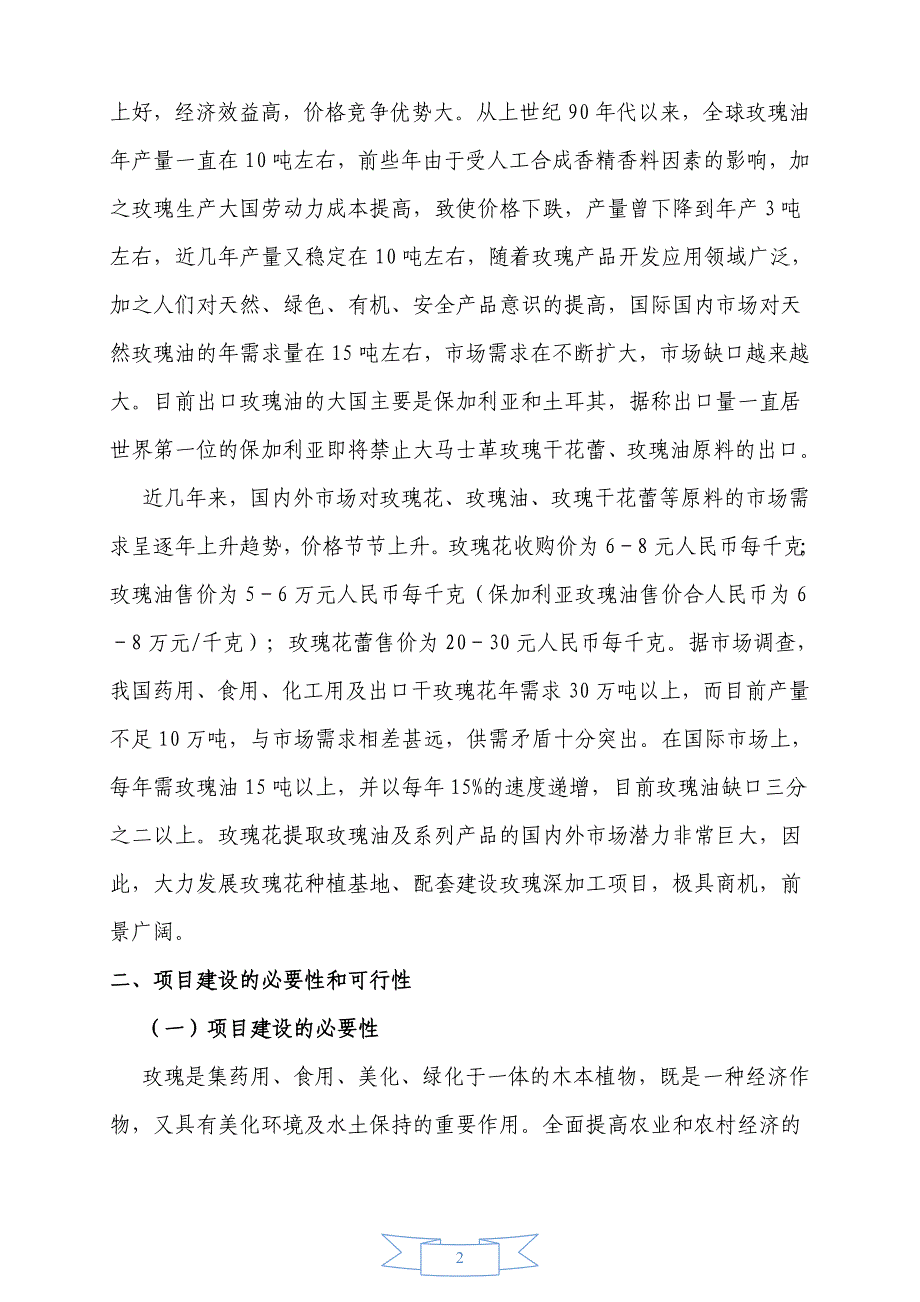 上好，经济效益高，价格竞争优势大。从上世纪 90 年代以来，全球玫瑰油
年产量一直在 10 吨左右，前些年由于受人工合成香精香料因素的影响，加
之玫瑰生产大国劳动力成本提高，致使价格下跌，产量曾下降到年产 3 吨
左右，近几年产量又稳定在 10 吨左右，随着玫瑰产品开发应用领域广泛，
加之人们对天然、绿色、有机、安全产品意识的提高，国际国内市场对天
然玫瑰油的年需求量在 15 吨左右，市场需求在不断扩大，市场缺口越来越
大。目前出口玫瑰油的大国主要是保加利亚和土耳其，据称出口量一直居
世界第一位的保加利亚即将禁止大马士革玫瑰干花蕾、玫瑰油原料的出口。
近几年来，国内外市场对玫瑰花、玫瑰油、玫瑰干花蕾等原料的市场需
求呈逐年上升趋势，价格节节上升。玫瑰花收购价为 6－8 元人民币每千克；
玫瑰油售价为 5－6 万元人民币每千克（保加利亚玫瑰油售价合人民币为 6
－8 万元/千克）；玫瑰花蕾售价为 20－30 元人民币每千克。据市场调查，
我国药用、食用、化工用及出口干玫瑰花年需求 30 万吨以上，而目前产量
不足 10 万吨，与市场需求相差甚远，供需矛盾十分突出。在国际市场上，
每年需玫瑰油 15 吨以上，并以每年 15%的速度递增，目前玫瑰油缺口三分
之二以上。玫瑰花提取玫瑰油及系列产品的国内外市场潜力非常巨大，因
此，大力发展玫瑰花种植基地、配套建设玫瑰深加工项目，极具商机，前
景广阔。
二、项目建设的必要性和可行性
（一）项目建设的必要性
玫瑰是集药用、食用、美化、绿化于一体的木本植物，既是一种经济作
物，又具有美化环境及水土保持的重要作用。全面提高农业和农村经济的
2